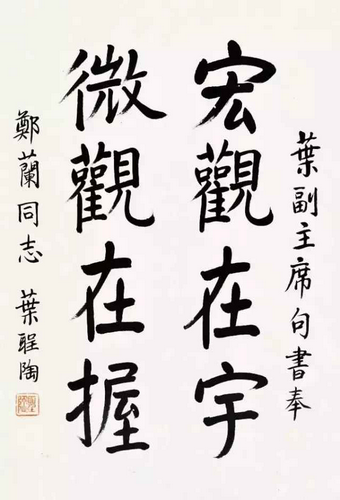 葉副主席句書奉
宏觀在宇
微觀在握
鄭蘭同志 葉聖陶